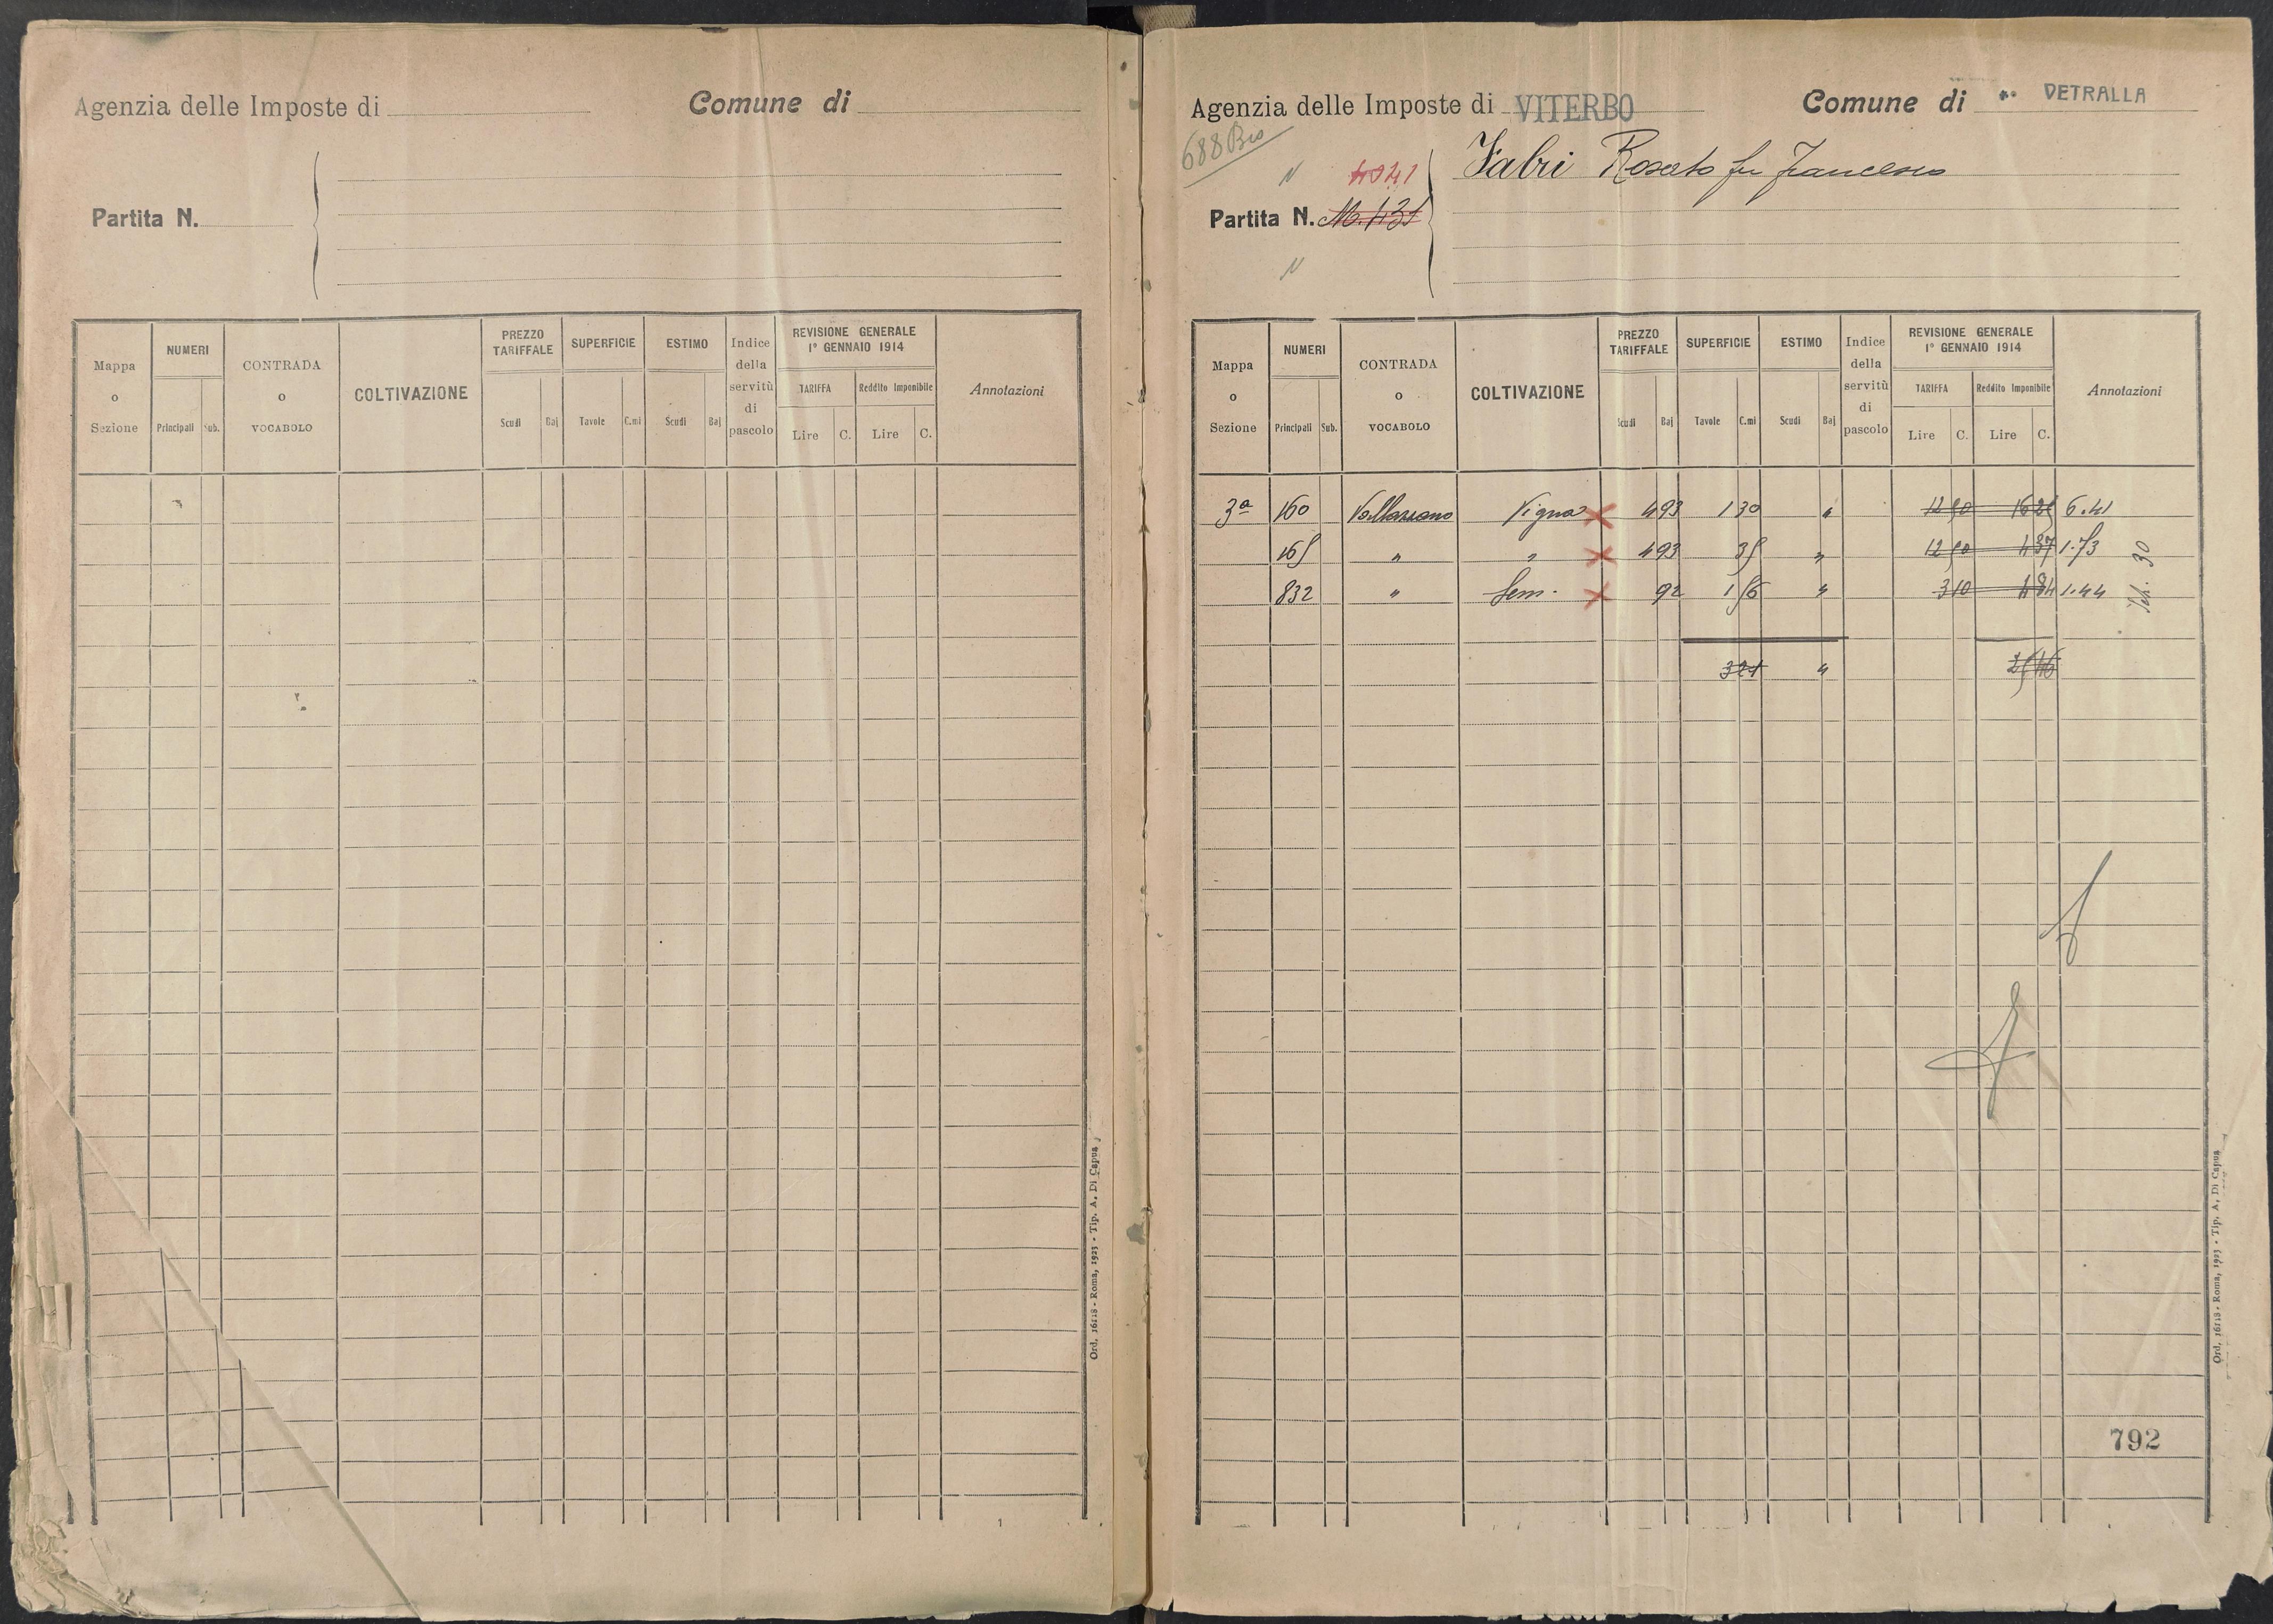 Agenzia delle Imposte di
Comune di
Partita N.
Mappa o Sezione
NUMERI
Principali
Sub.
CONTRADA o VOCABOLO
COLTIVAZIONE
PREZZO TARIFFALE
Scudi
Baj
SUPERFICIE
Tavole
C.mi
ESTIMO
Scudi
Baj
Indice della servitù di pascolo
REVISIONE GENERALE
1° GENNAIO 1914
TARIFFA
Lire
C.
Reddito Imponibile
Lire
C.
Annotazioni
Ord. 16118 - Roma, 1923 - Tip. A. Di Capua
Agenzia delle Imposte di VITERBO
Comune di VETRALLA
688 Bis
4041
Fabri Rosato fu Francesco
Partita N.
Mappa o Sezione
NUMERI
Principali
Sub.
CONTRADA o VOCABOLO
COLTIVAZIONE
PREZZO TARIFFALE
Scudi
Baj
SUPERFICIE
Tavole
C.mi
ESTIMO
Scudi
Baj
Indice della servitù di pascolo
REVISIONE GENERALE
1° GENNAIO 1914
TARIFFA
Lire
C.
Reddito Imponibile
Lire
C.
Annotazioni
3ª 160 Vigna 493 130 " 12 50 16 25 6.41
165 " " 493 35 " 12 50 4 37 1.73
832 " Sem. 92 156 " 3 10 4 84 1.44
321 " 25 46
792
Ord. 16118 - Roma, 1923 - Tip. A. Di Capua